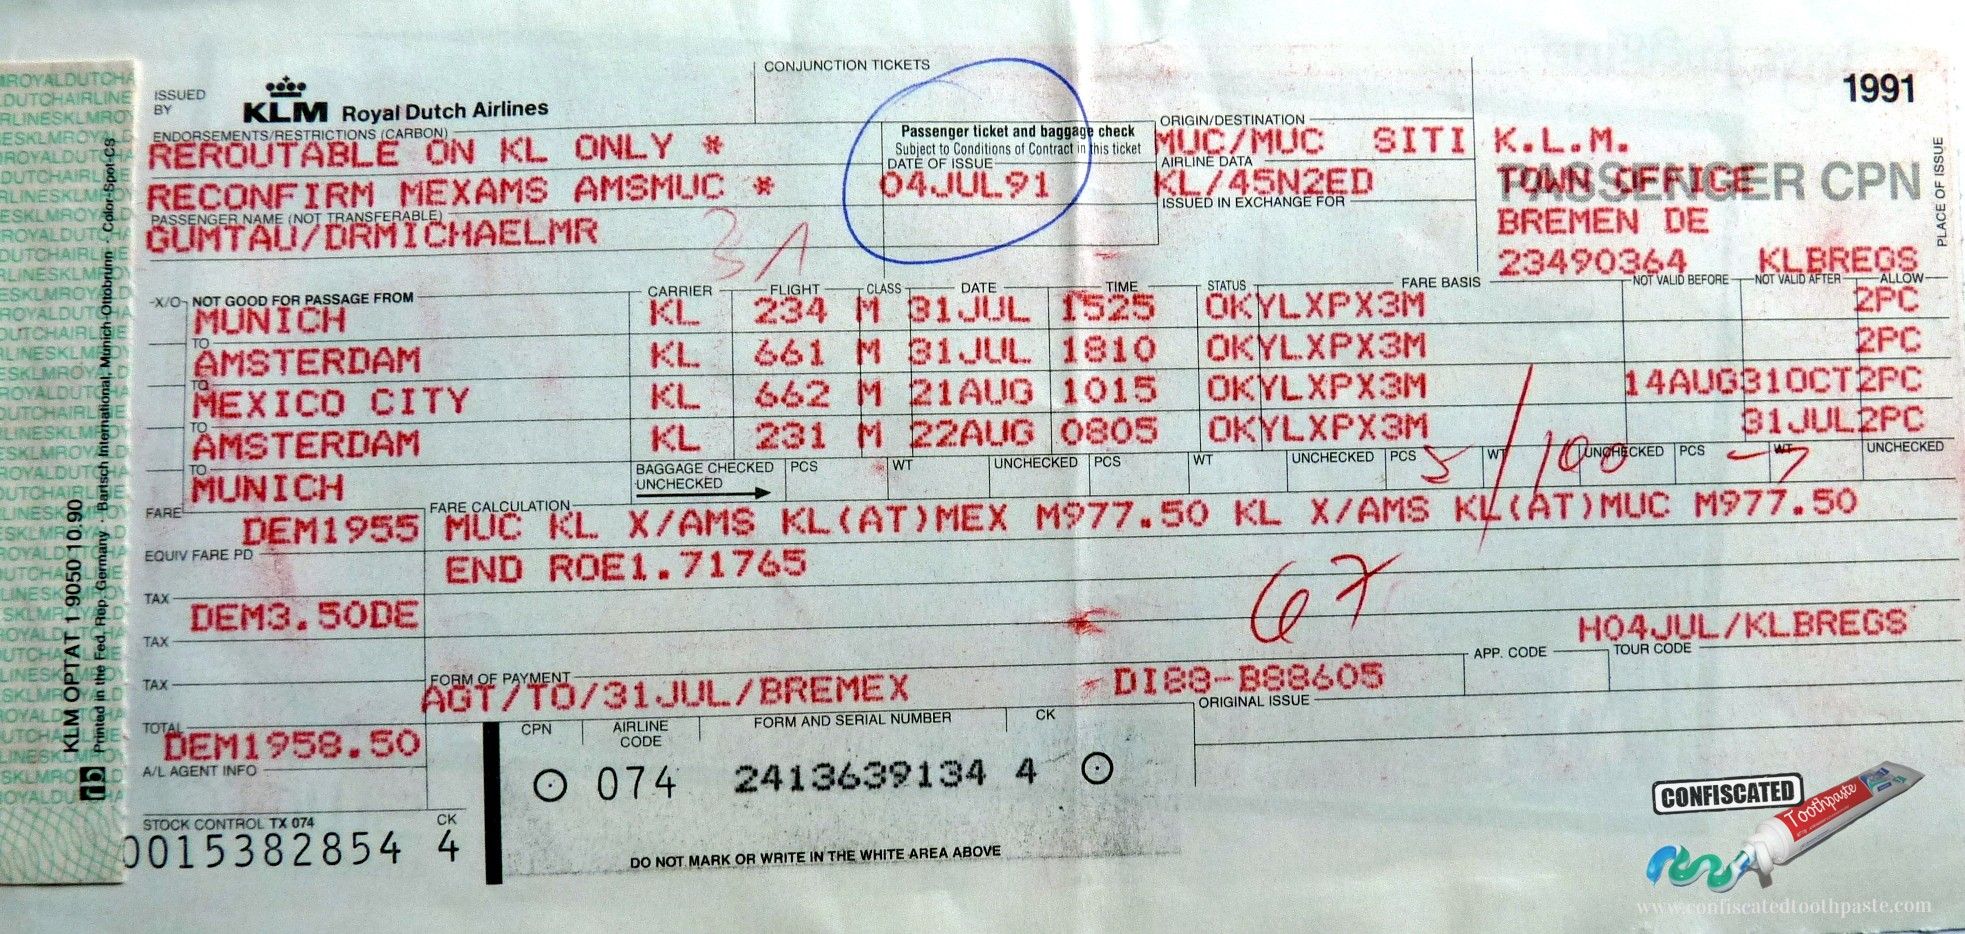 CONJUNCTION TICKETS
1991
ISSUED BY
KLM Royal Dutch Airlines
ENDORSEMENTS/RESTRICTIONS (CARBON)
REROUTABLE ON KL ONLY *
RECONFIRM MEXAMS AMSMUC *
Passenger ticket and baggage check
Subject to Conditions of Contract in this ticket
DATE OF ISSUE
04JUL91
ORIGIN/DESTINATION
MUC/MUC SITI
AIRLINE DATA
KL/45N2ED
ISSUED IN EXCHANGE FOR
K.L.M.
PASSENGER CPN
TOWN OFFICE
BREMEN DE
23490364 KLBREGS
PLACE OF ISSUE
PASSENGER NAME (NOT TRANSFERABLE)
GUMTAU/DRMICHAELMR
X/O NOT GOOD FOR PASSAGE FROM CARRIER FLIGHT CLASS DATE TIME STATUS FARE BASIS NOT VALID BEFORE NOT VALID AFTER ALLOW
MUNICH KL 234 M 31JUL 1525 OKYLXPX3M 2PC
TO
AMSTERDAM KL 661 M 31JUL 1810 OKYLXPX3M 2PC
TO
MEXICO CITY KL 662 M 21AUG 1015 OKYLXPX3M 14AUG31OCT2PC
TO
AMSTERDAM KL 231 M 22AUG 0805 OKYLXPX3M 31JUL2PC
TO
MUNICH
BAGGAGE CHECKED PCS WT UNCHECKED PCS WT UNCHECKED PCS WT UNCHECKED PCS WT UNCHECKED
UNCHECKED
5/100
FARE
DEM1955
FARE CALCULATION
MUC KL X/AMS KL(AT)MEX M977.50 KL X/AMS KL(AT)MUC M977.50
END ROE1.71765
EQUIV FARE PD
TAX
DEM3.50DE
67
TAX
H04JUL/KLBREGS
TAX
APP. CODE
TOUR CODE
FORM OF PAYMENT
AGT/TO/31JUL/BREMEX
DI88-B88605
ORIGINAL ISSUE
TOTAL
DEM1958.50
CPN AIRLINE CODE FORM AND SERIAL NUMBER CK
074 2413639134 4
A/L AGENT INFO
STOCK CONTROL TX 074 CK
0015382854 4
DO NOT MARK OR WRITE IN THE WHITE AREA ABOVE
KLM OPTAT 1 9050 10.90
Printed in the Fed. Rep. Germany · Bartsch International, Munich-Ottobrunn · Color-Spot-Cs
CONFISCATED
Toothpaste
www.confiscatedtoothpaste.com